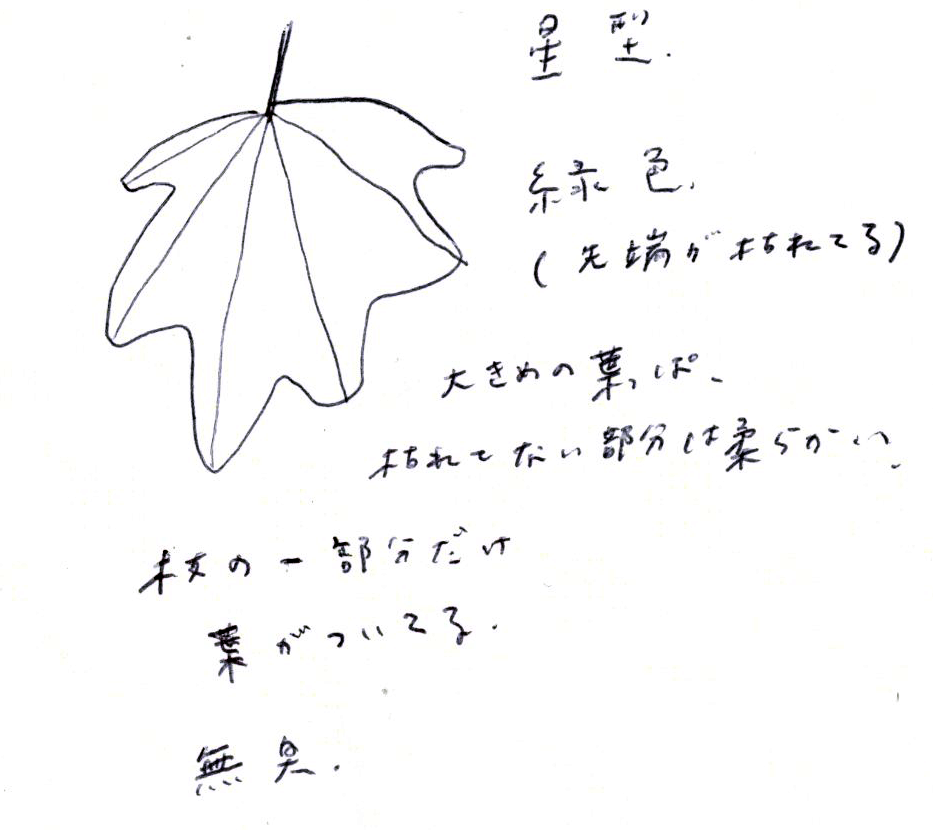 星型.
緑色.
(先端が枯れてる)
大きめの葉っぱ、
枯れてない部分は柔らかい、
枝の一部分だけ
葉がついてる.
無臭.